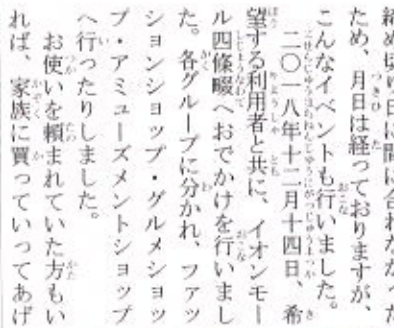 締め切り日に間に合わなかった
ため、月日は経っておりますが、
こんなイベントも行いました。
二〇一八年十二月十四日、希
望する利用者と共に、イオンモー
ル四條畷へおでかけを行いまし
た。各グループに分かれ、ファッ
ションショップ・グルメショッ
プ・アミューズメントショップ
へ行ったりしました。
お使いを頼まれていた方もい
れば、家族に買っていってあげ